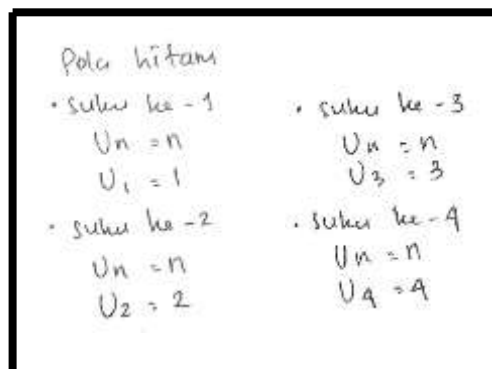 Pola hitam
• suku ke - 1
Un = n
U1 = 1
• suku ke - 2
Un = n
U2 = 2
• suku ke - 3
Un = n
U3 = 3
• suku ke - 4
Un = n
U4 = 4